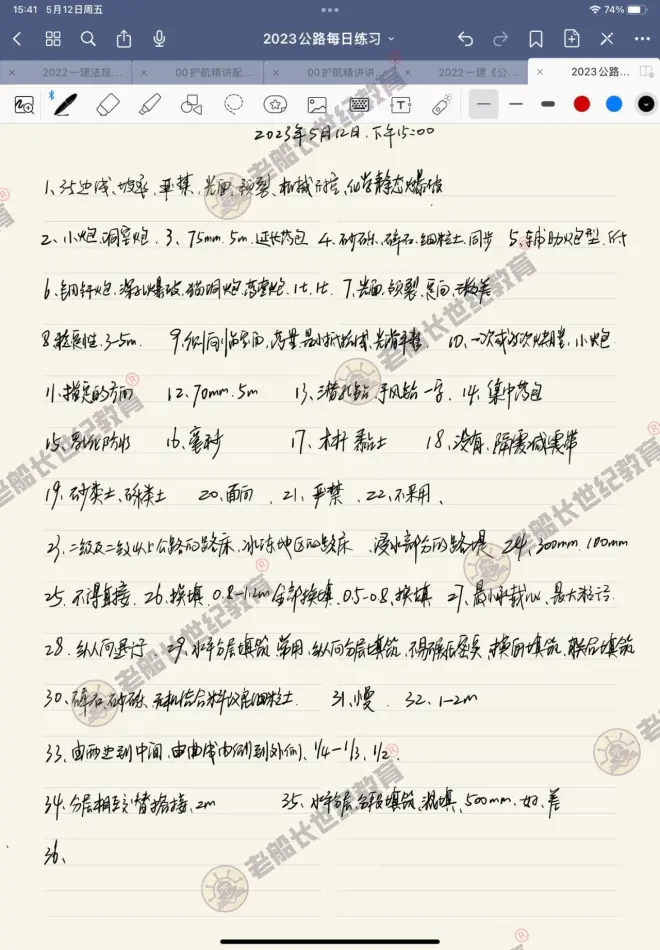 15:41 5月12日周五
74%
2023公路每日练习
2022一建法规...
00护航精讲配...
00护航精讲讲...
2022一建《公...
2023公路...
2023年5月12日.下午15:00
1、边线、坡率、严禁、光面、预裂、机械、化学静态爆破
2、小炮、洞室炮. 3、75mm.5m.延长药包 4、砂砾、碎石、细粒土.同步 5、辅助炮型.
6、钢钎炮.深孔爆破.猫洞炮.药壶炮.1t.1t. 7、光面、预裂、定向、微差
8、稳定性.3-5m. 9、有侧向临空面,药量是小抵抗线,光滑平整. 10、一次或多次烘膛,小炮
11、指定的方向 12、70mm.5m 13、潜孔钻.手风钻一字. 14、集中药包
15、风化防水 16、塞砂 17、木杆 黏土 18、没有.隔震减震带
19、砂类土、砾类土 20、面向 21、严禁 22、不采用、
23、二级及二级以上公路的路床、冰冻地区的路床 浸水部分的路堤 24、300mm.100mm
25、不得直接. 26、换填.0.8-1.2m全部换填.0.5-0.8、换填 27、最小承载比、最大粒径
28、纵向进行 29、水平分层填筑 常用、纵向分层填筑.不易碾压密实、横向填筑、联合填筑
30、碎石 砂砾、无机结合料稳定细粒土. 31、慢. 32、1-2m
33、由两边到中间、由曲线内侧到外侧、1/4-1/3、1/2.
34、分层相互交替搭接、2m 35、水平分层.分段填筑、混填、500mm.好、差
36、
老船长世纪教育®
老船长世纪教育®
老船长世纪教育®
老船长世纪教育®
老船长世纪教育®
老船长世纪教育®